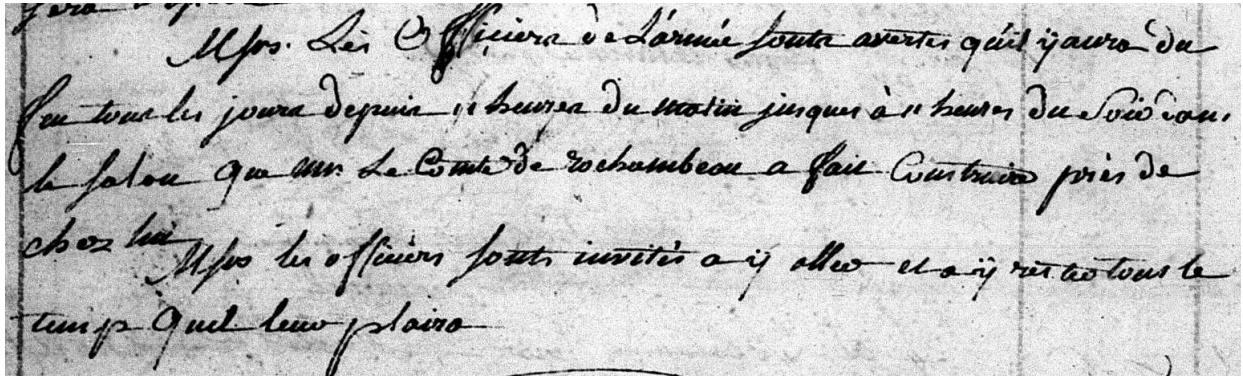 sera
Mrs. Les Officiers de L'armée sonts avertis quil y aura du
feu tous les jours depuis 11 heures du matin jusques à 11 heures du Soir dans
le salon que mr. Le Comte de rochambeau a fait Construire près de
chez lui
Mrs les officiers sonts invités a ÿ aller et a ÿ rester tous le
temp quil leur plaira